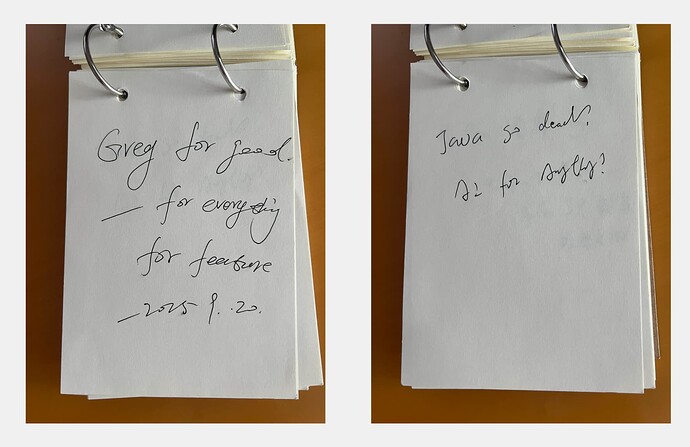 Greg for good.
— for everyday
for feature
— 2025 9. 20.
Java go dead?
Ai for